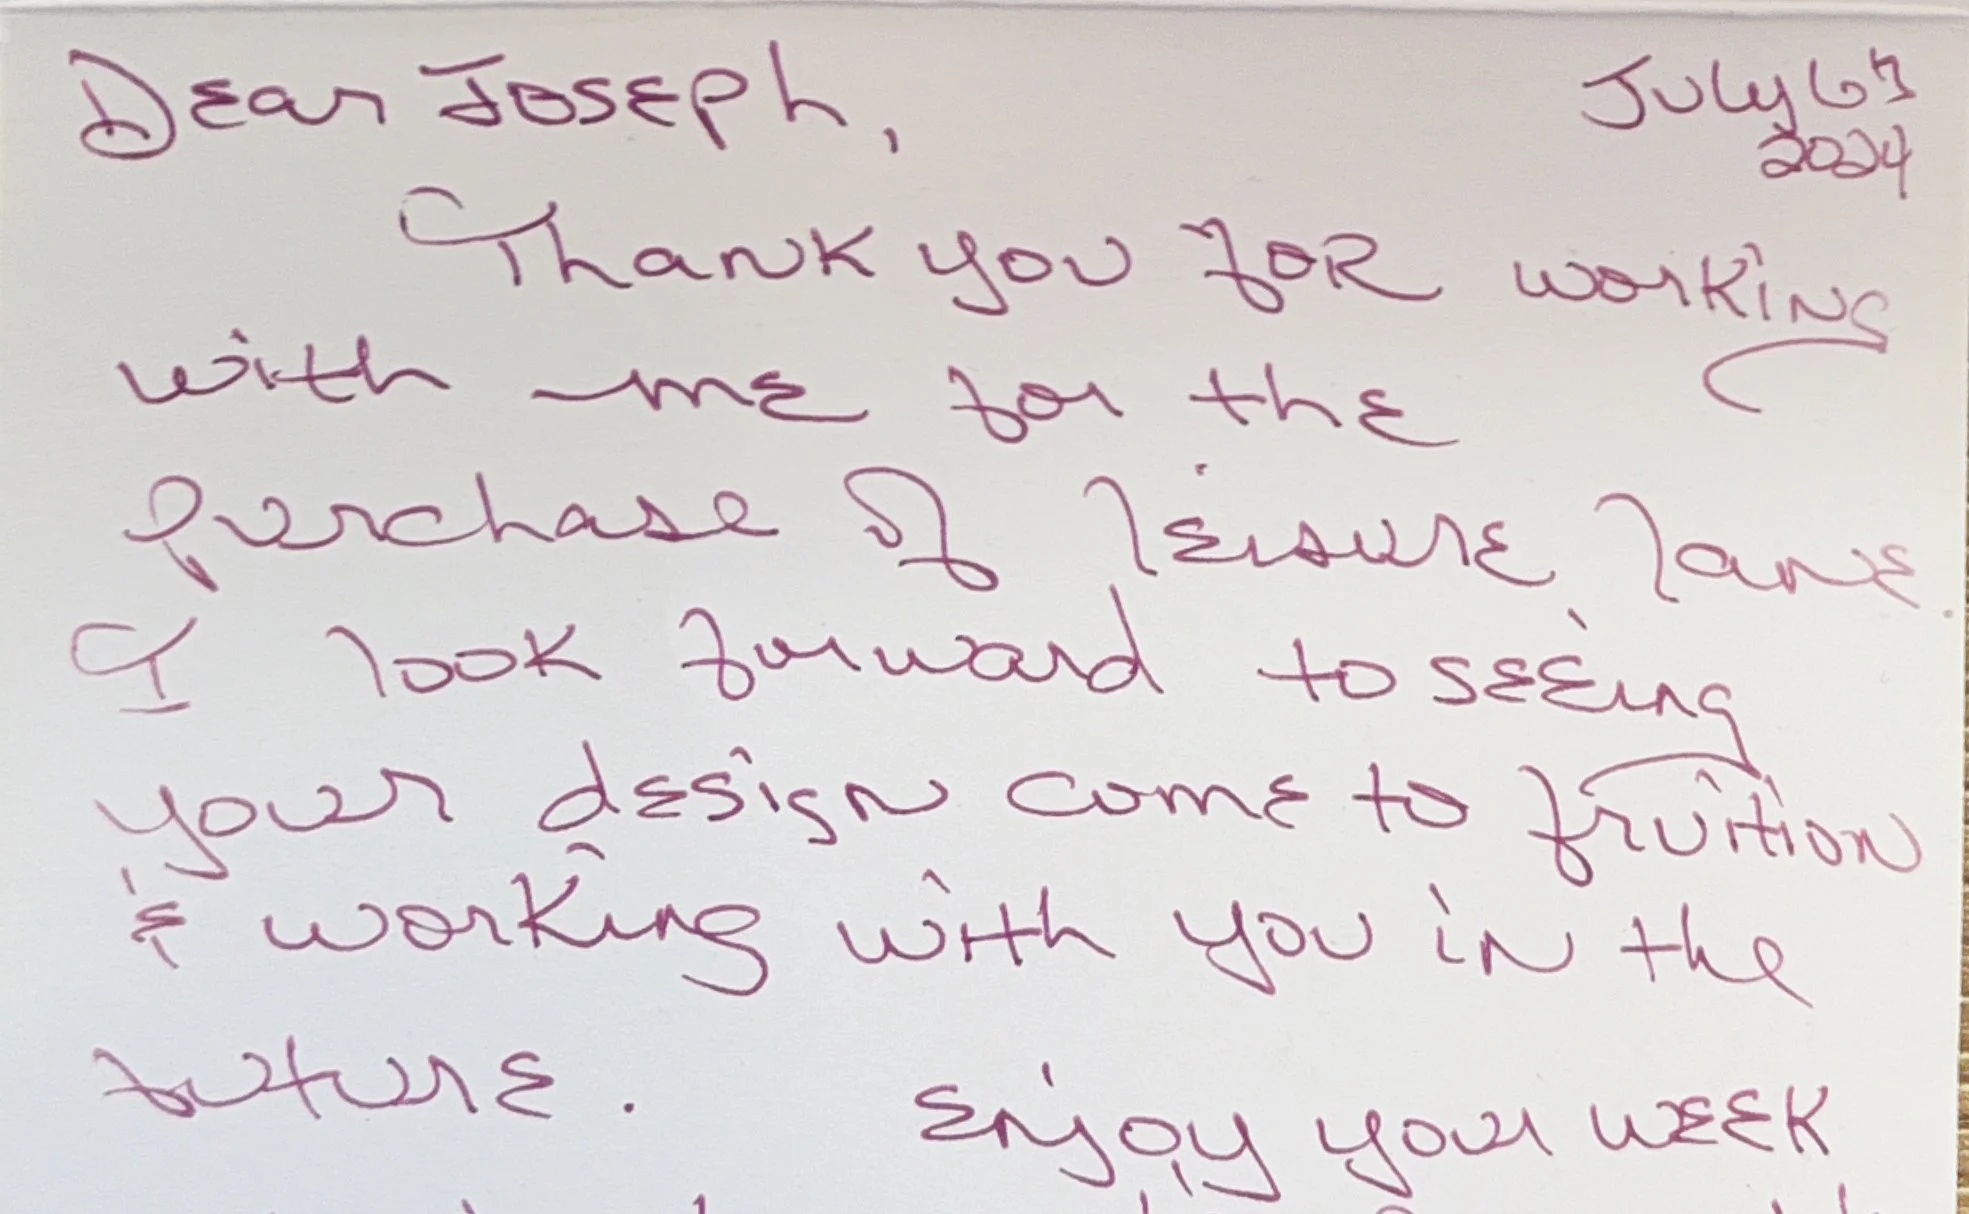 Dear Joseph,
July 6th
2024
Thank you for working
with me for the
purchase of leisure lane.
I look forward to seeing
your design come to fruition
& working with you in the
future. Enjoy your week